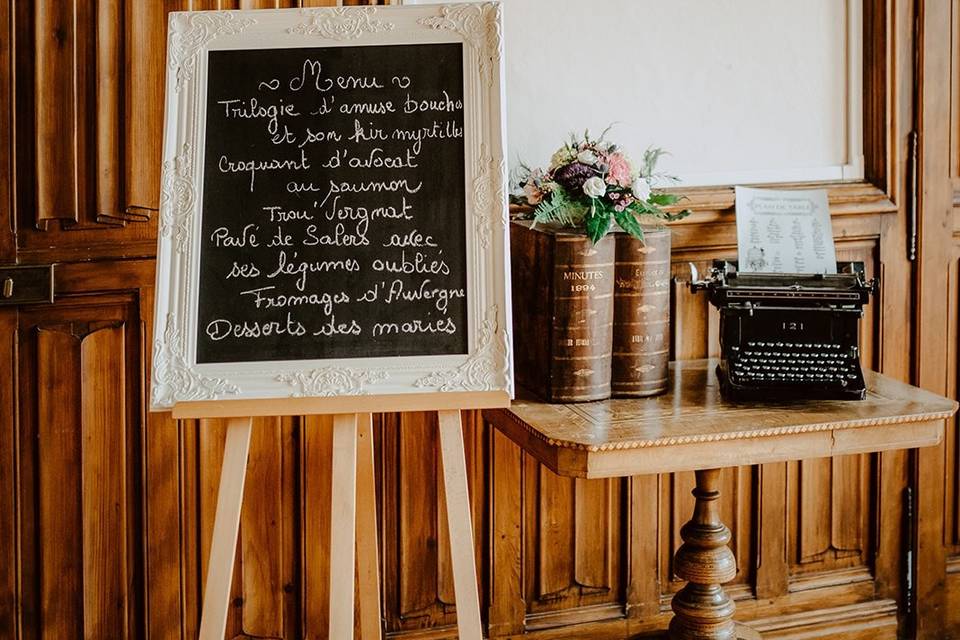 Menu
Trilogie d'amuse bouches
et son kir myrtilles
Croquant d'avocat
au saumon
Trou' Vergnat
Pavé de Salers avec
ses légumes oubliés
Fromages d'Auvergne
Desserts des mariés
MINUTES
1894
PLAN DE TABLE
121